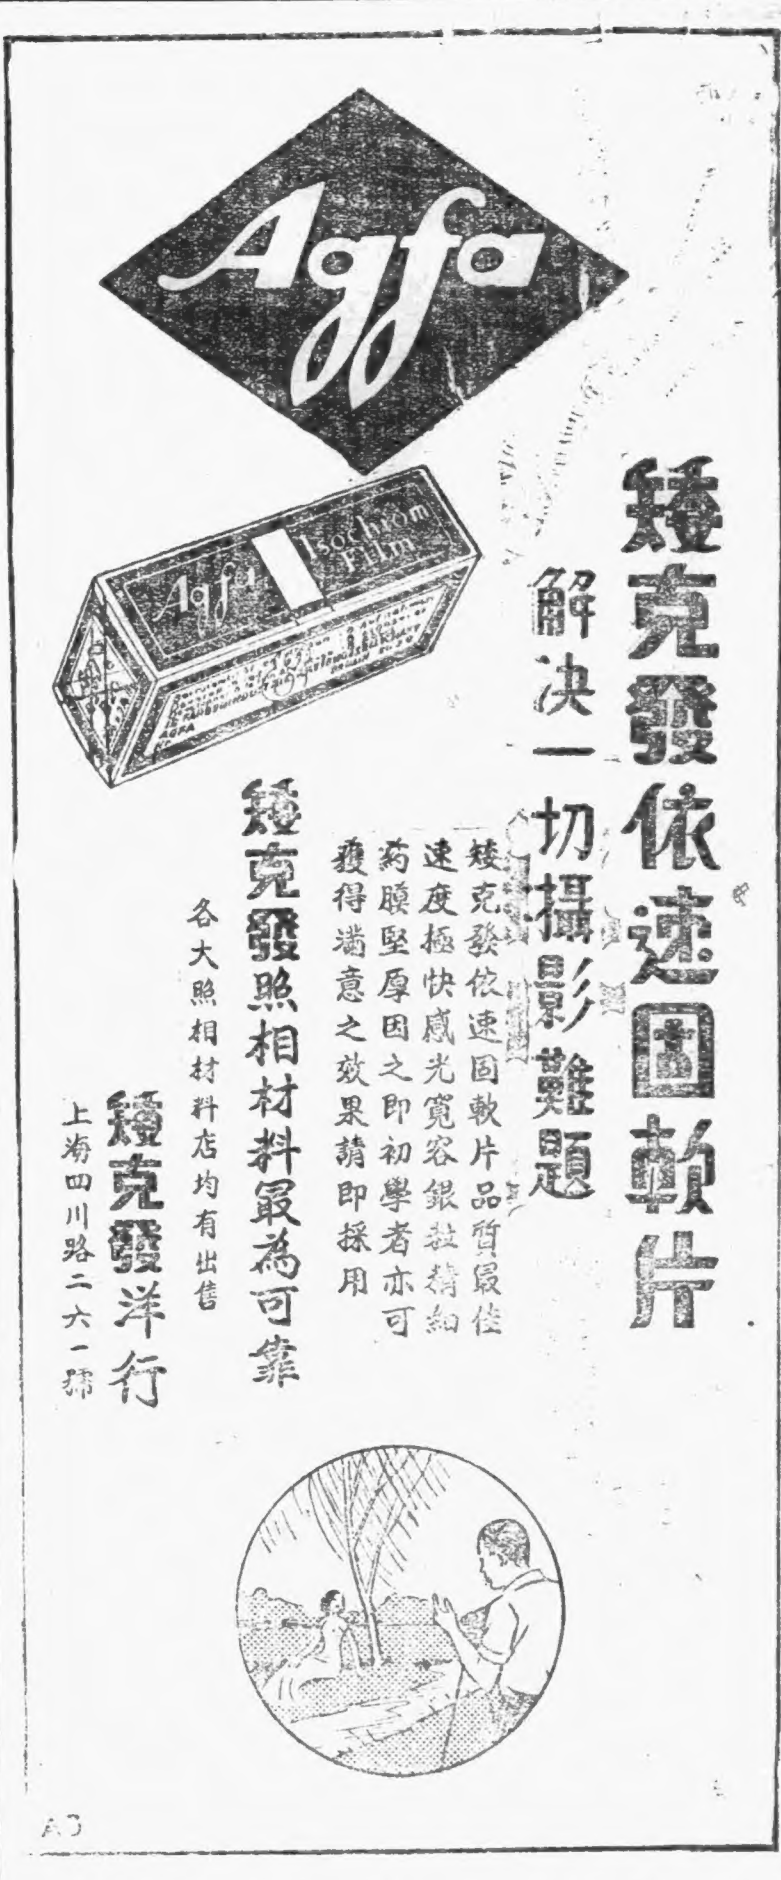 Agfa
Agfa Isochrom
Film
矮克發依速固軟片
解決一切攝影難題
矮克發依速固軟片品質最佳
速度極快感光寬容銀粒精細
葯膜堅厚因之即初學者亦可
獲得滿意之效果請即採用
矮克發照相材料最為可靠
各大照相材料店均有出售
矮克發洋行
上海四川路二六一號